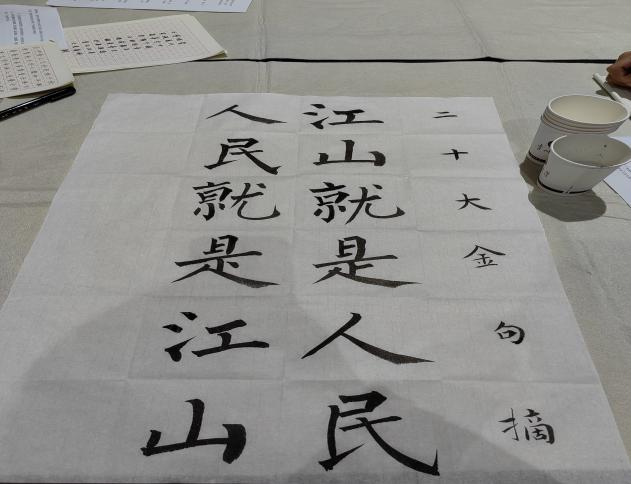 二十大金句摘
江山就是人民
人民就是江山